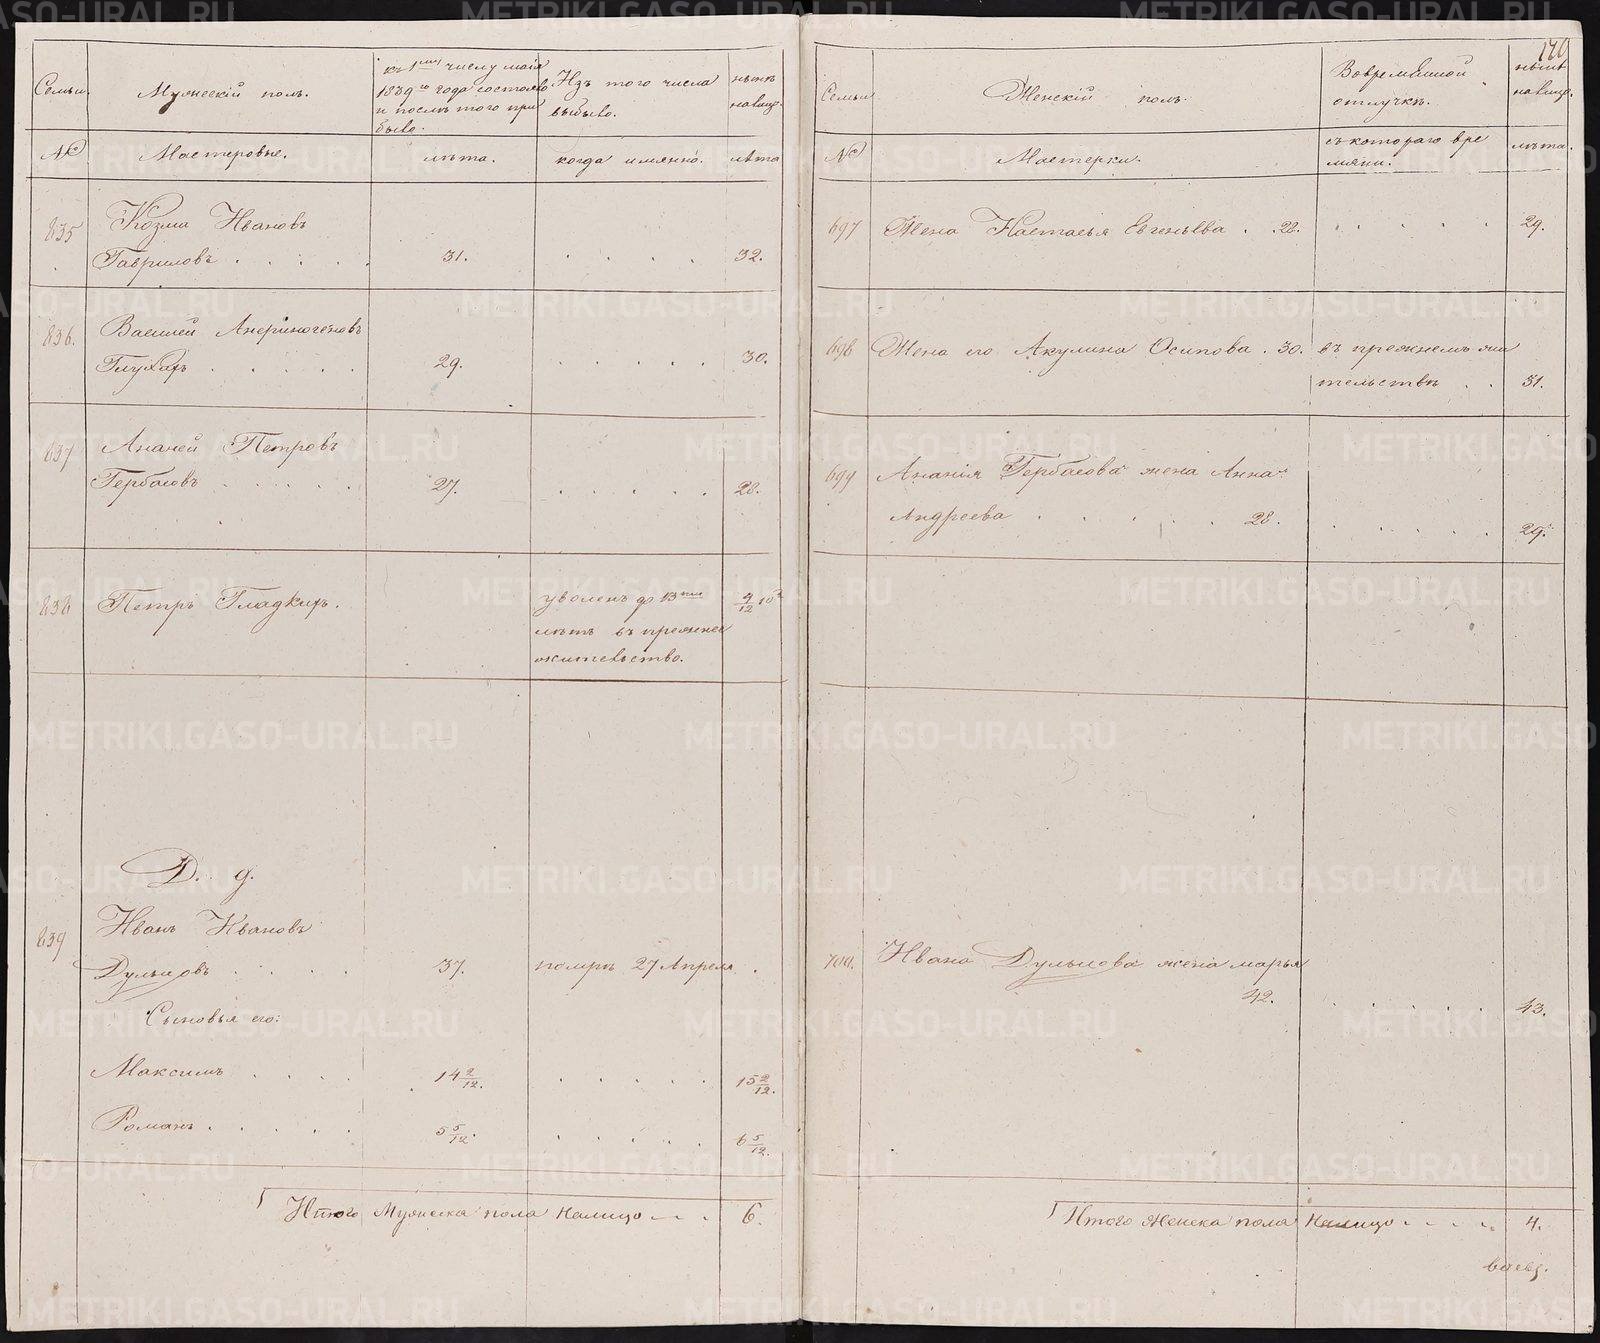 Семьи.
Мужескій полъ.
къ 1му числу маія
1839го года состояло
и послѣ того при
было.
Изъ того числа
выбыло.
нынѣ
на лицо.
№
Мастеровые.
лѣта.
когда имянно.
лѣта
835
Козма Ивановъ
Гавриловъ
31.
32.
836.
Василей
Глухихъ
29.
30.
837
Ананей Петровъ
Гербасовъ
27.
28.
838
Петръ Гладкихъ.
уволенъ до 13ти
лѣтъ въ прежнее
жительство.
9/12 10
Д. д.
839
Иванъ Ивановъ
Дульцовъ
37.
помре 27 Апреля.
Сыновья его:
Максимъ
14 2/12.
15 2/12.
Романъ
5 5/12.
6 5/12.
Итого Мужеска пола налицо
6.
149
Семьи
Женскій полъ.
Во временной
отлучкѣ.
нынѣ
на лицо.
№
Мастерки.
съ котораго вре
мяни.
лѣта.
697
Жена Настасья Евгеньева 28.
29.
698
Жена его Акулина Осипова 30.
въ прежнемъ жи
тельствѣ
31.
699
Ананія Гербасова жена Анна
Андреева
28.
29.
700.
Ивана Дульцова жена марья
42.
43.
Итого Женска пола налицо
4.
METRIKI.GASO-URAL.RU